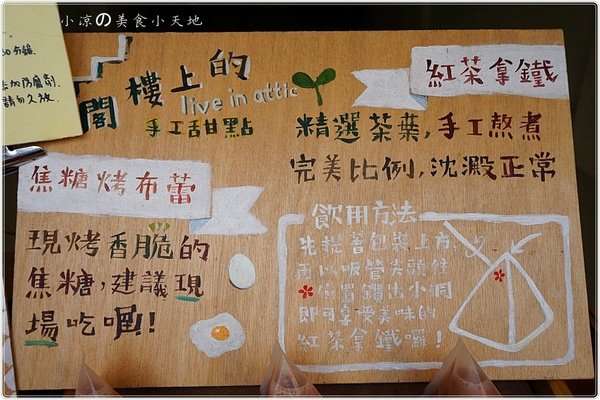 小凉の美食小天地
50分鐘.
請勿久放.
樓上的
閣
live in attic
手工舌甘點
紅茶拿鐵
精選茶葉,手工熬煮
完美比例,沈澱正常
焦糖烤布蕾
現烤香脆的
焦糖,建議現
場吃喔!!
飲用方法
先提著包裝上方,
再以吸管尖頭往
位置鑽出小洞
即可享受美味的
紅茶拿鐵囉!